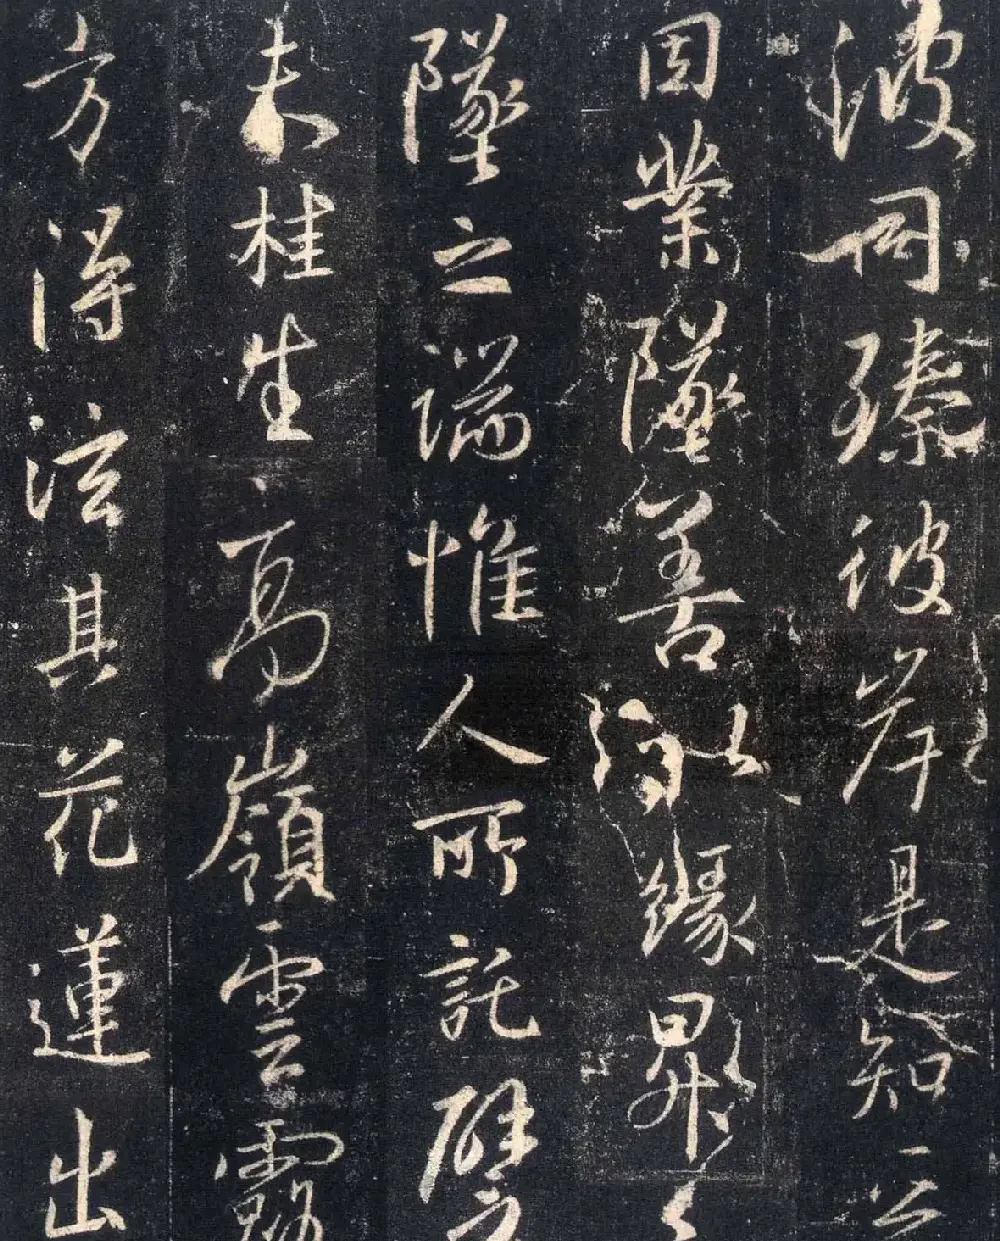 波同臻彼岸是知恶
因業墜善以緣昇之
墜之端惟人所託譬夫
桂生高嶺雲露
方得泫其花蓮出